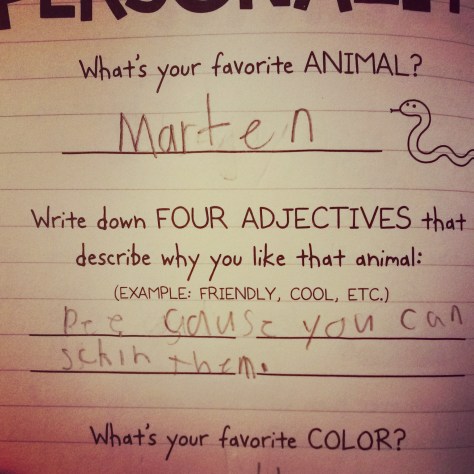 PERSONALIT
What's your favorite ANIMAL?
Marten
Write down FOUR ADJECTIVES that
describe why you like that animal:
(EXAMPLE: FRIENDLY, COOL, ETC.)
Bee gause you can
sckin them.
What's your favorite COLOR?